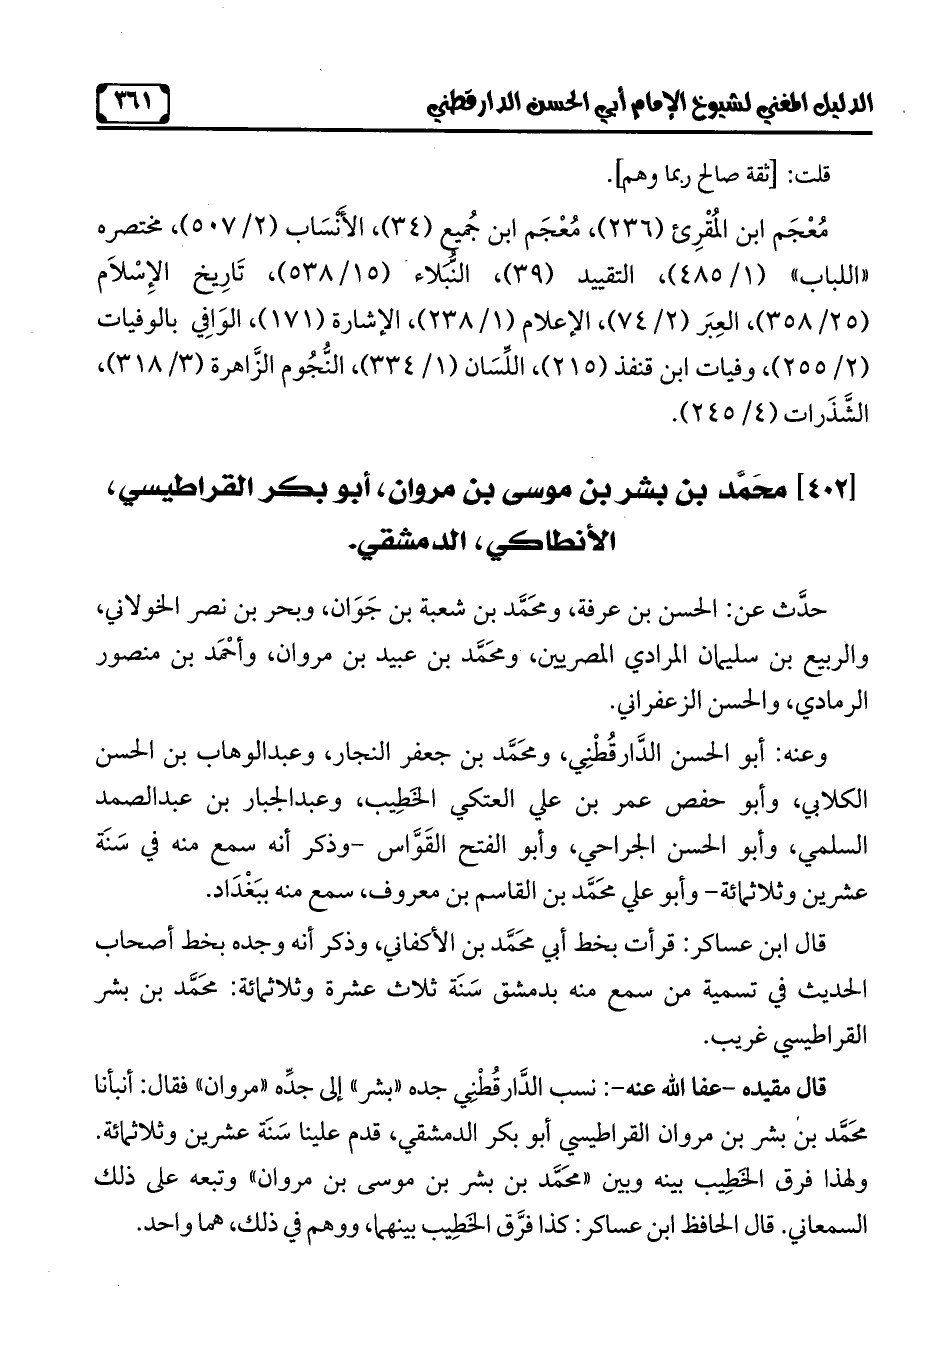 الدليل المغني لشيوخ الإمام أبي الحسن الدارقطني
٣٦١
قلت: [ثقة صالح ربما وهم].
مُعْجَم ابن المُقْرِئ (٢٣٦)، مُعْجَم ابن جُميع (٣٤)، الأَنْسَاب (٢/ ٥٠٧)، مختصره
«اللباب» (١/ ٤٨٥)، التقييد (٣٩)، النُّبَلاء (١٥/ ٥٣٨)، تَارِيخ الإِسْلَام
(٢٥/ ٣٥٨)، العِبَر (٢/ ٧٤)، الإعلام (١/ ٢٣٨)، الإشارة (١٧١)، الوَافِي بالوفيات
(٢/ ٢٥٥)، وفيات ابن قنفذ (٢١٥)، اللِّسَان (١/ ٣٣٤)، النُّجُوم الزَّاهرة (٣/ ٣١٨)،
الشَّذَرات (٤/ ٢٤٥).
[٤٠٢] محَمَّد بن بشر بن موسى بن مروان، أبو بكر القراطيسي،
الأنطاكي، الدمشقي.
حدَّث عن: الحسن بن عرفة، ومحَمَّد بن شعبة بن جَوَان، وبحر بن نصر الخولاني،
والربيع بن سليمان المرادي المصريين، ومحَمَّد بن عبيد بن مروان، وأَحْمَد بن منصور
الرمادي، والحسن الزعفراني.
وعنه: أبو الحسن الدَّارقُطْنِي، ومحَمَّد بن جعفر النجار، وعبدالوهاب بن الحسن
الكلابي، وأبو حفص عمر بن علي العتكي الخَطِيب، وعبدالجبار بن عبدالصمد
السلمي، وأبو الحسن الجراحي، وأبو الفتح القَوَّاس -وذكر أنه سمع منه في سَنَة
عشرين وثلاثمائة- وأبو علي محَمَّد بن القاسم بن معروف، سمع منه ببَغْدَاد.
قال ابن عساكر: قرأت بخط أبي محَمَّد بن الأكفاني، وذكر أنه وجده بخط أصحاب
الحديث في تسمية من سمع منه بدمشق سَنَة ثلاث عشرة وثلاثمائة: محَمَّد بن بشر
القراطيسي غريب.
قال مقيده -عفا الله عنه-: نسب الدَّارقُطْنِي جده «بشر» إلى جدِّه «مروان» فقال: أنبأنا
محَمَّد بن بشر بن مروان القراطيسي أبو بكر الدمشقي، قدم علينا سَنَة عشرين وثلاثمائة.
ولهذا فرق الخَطِيب بينه وبين «محَمَّد بن بشر بن موسى بن مروان» وتبعه على ذلك
السمعاني. قال الحافظ ابن عساكر: كذا فرَّق الخَطِيب بينهما، ووهم في ذلك، هما واحد.